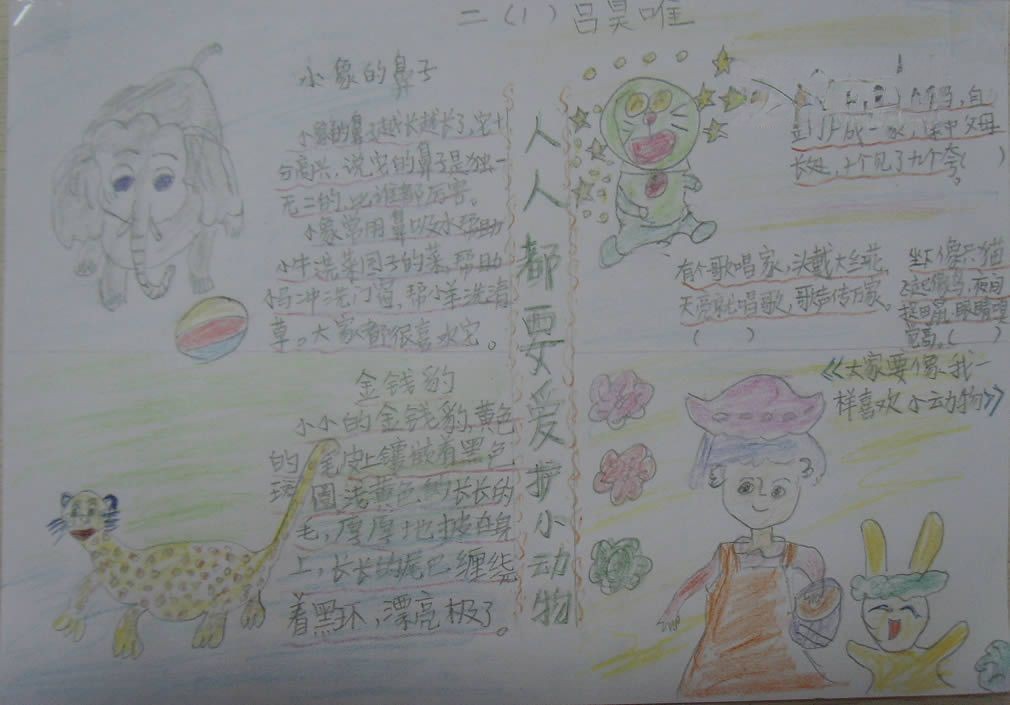 二（1）吕昊唯
小象的鼻子
小象的鼻子越长越长了，它十
分高兴，说它的鼻子是独一
无二的，比谁都厉害。
小象常用鼻吸水帮助
小牛洗菜园子的菜，帮助
小马冲洗门窗，帮小羊洗青
草。大家都很喜欢它。
金钱豹
小小的金钱豹，黄色
的毛皮上镶嵌着黑色
圆，浅黄色的长长的
毛，厚厚地披在身
上，长长的尾巴缠绕
着黑环，漂亮极了。
人人都要爱护小动物
一家，家中父母
长处，个个见了九个夸（ ）。
有个歌唱家，头戴大红花，
天亮就唱歌，歌声传万家。
（ ）
坐下像只猫
飞起像鸟，夜间
捉田鼠，眼睛
（ ）
《大家要像我一
样喜欢小动物》